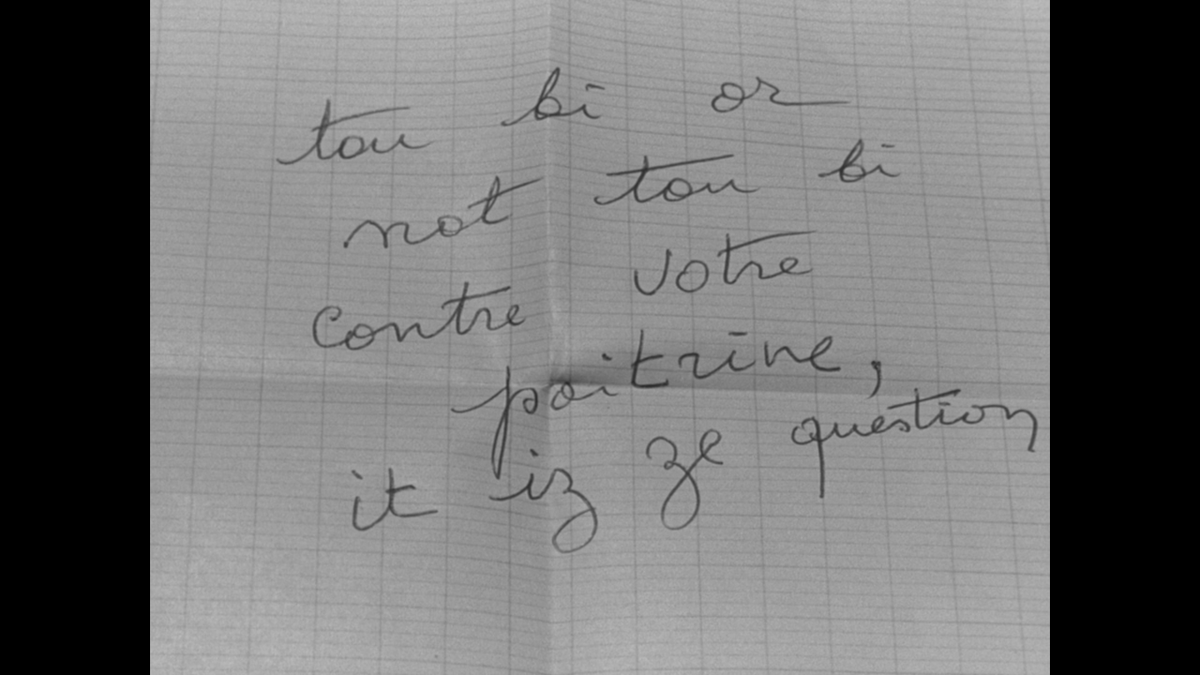 tou bi or
not tou bi
contre votre
poitrine,
it iz ze question